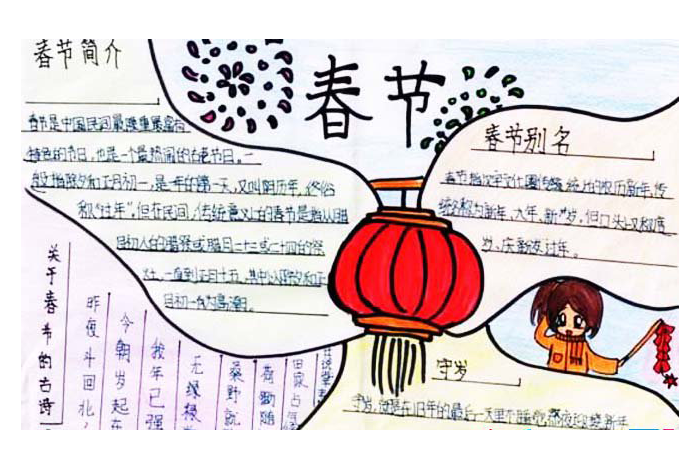 春节
春节简介
春节是中国民间最隆重最富有
特色的节日，也是一个最热闹的古老节日，一
般指除夕和正月初一，是一年的第一天，又叫阴历年，俗
称“过年”，但在民间，传统意义上的春节是指从腊
月初八的腊祭或腊月二十三或二十四的祭
灶，一直到正月十五，其中以除夕和正
月初一为高潮。
春节别名
春节指汉字文化圈传统上的农历新年，传
统名称为新年、大年、新岁，但口头上又称度
岁、庆新岁、过年。
关于春节的古诗
昨夜斗回北
今朝岁起东
我年已强
无禄
桑野就
荷锄随
田家占气
守岁
守岁，就是在旧年的最后一天里不睡觉，熬夜迎接新年